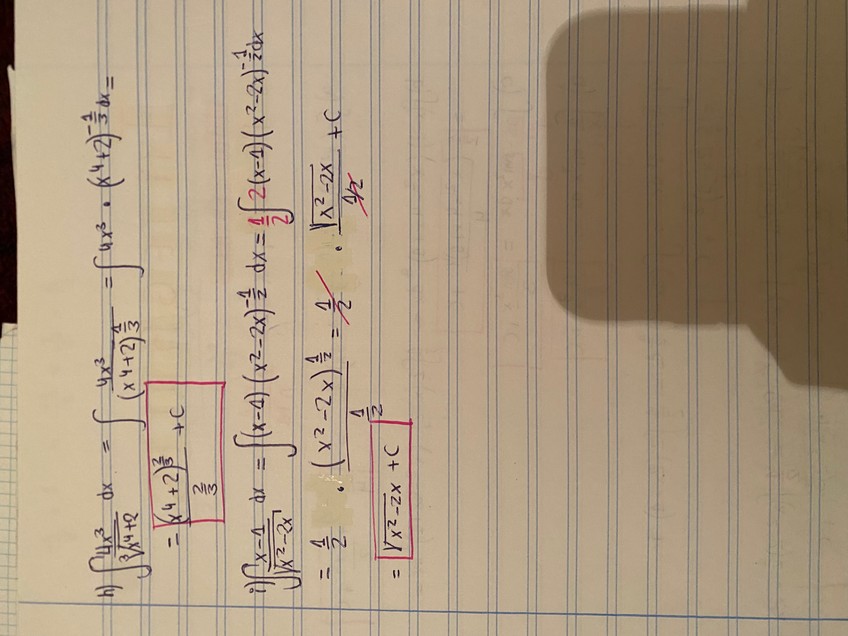 h) ∫ 4x³/∛(x⁴+2) dx = ∫ 4x³/(x⁴+2)^(1/3) = ∫ 4x³ · (x⁴+2)^(-1/3) dx =
= (x⁴+2)^(2/3)/(2/3) + C
i) ∫ x-1/√(x²-2x) dx = ∫ (x-1) (x²-2x)^(-1/2) dx = 1/2 ∫ 2(x-1) (x²-2x)^(-1/2) dx
= 1/2 · (x²-2x)^(1/2)/(1/2) = 1/2 · √(x²-2x)/(1/2) + C
= √(x²-2x) + C